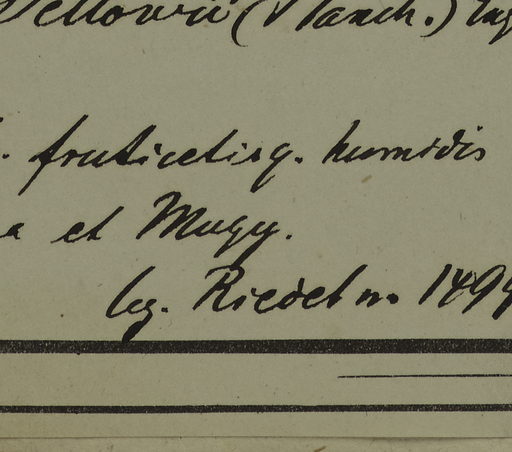 Sellowii (Planch.) Eng
fruticetisq. humidis
et Mugy.
leg. Riedel n. 1494